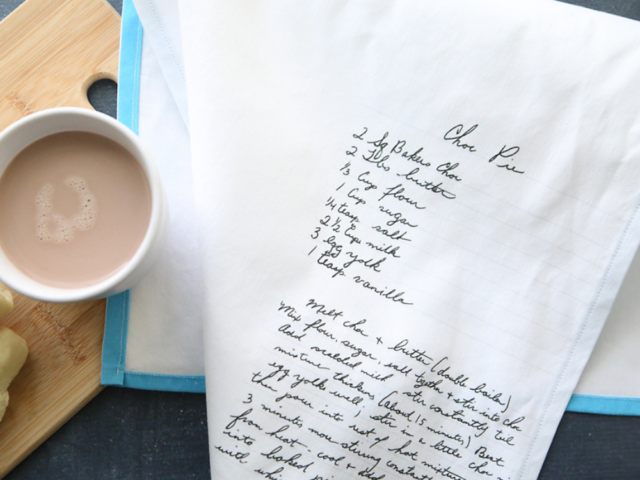 Choc Pie
2 Sq Bakers Choc
2 Tbs butter
1/3 Cup flour
1 Cup sugar
1/4 teasp salt
2 1/2 Cups milk
3 Egg yolk
1 teasp vanilla
Melt choc + butter (double boiler)
Mix flour, sugar, salt together + stir into choc
Add scalded milk stir constantly til
mixture thickens (about 15 minutes) Beat
egg yolks well, stir in a little choc
then pour into rest of hot mixture
3 minutes more stirring constantly
from heat - cool + add
into baked
with